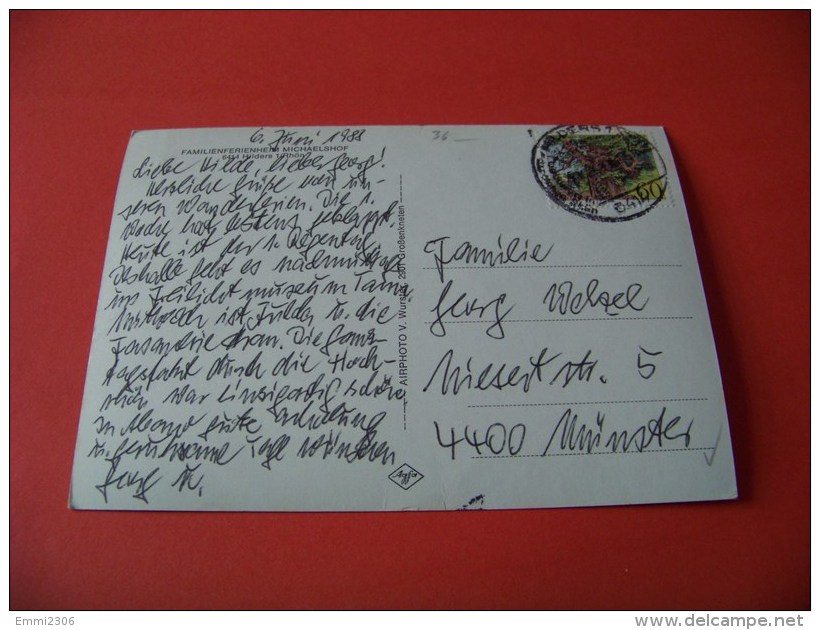 6. Juni 1988
36
FAMILIENFERIENHEIM MICHAELSHOF
6414 Hilders 1/Rhön
Liebe Hilde, lieber Georg!
Herzliche Grüße von un-
seren Wanderferien. Die 1.
Woche hat bestens geklappt.
Heute ist der 1. Regentag.
Deshalb geht es nachmittags
ins Freilichtmuseum Tann.
Mittwoch ist Fulda u. die
Fasanerie dran. Die Ganz-
tagsfahrt durch die Hoch-
rhön war einzigartig schön.
gute Erholung
u. geruhsame Tage wünschen
Georg u.
AIRPHOTO V. Wurster, 2907 Großenkneten
60
Familie
Georg Wetzel
str. 5
4400 Münster
Agfa
Emmi2306
delcampe.net